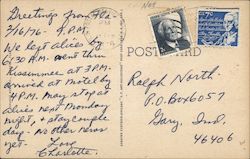 Greetings from Fla-
3/16/76- 9 P.M.
We left Alices by
6:30 A.M. went thru
Kissimmee at 3 P.M.
arrived at Motel by
4 P.M. May stop at
Alices next Monday
night, & stay couple
day- no other news
yet. Love
Charlotte.
POST CARD
Ralph North
P.O. Box 6057
Gary, Ind.
46406